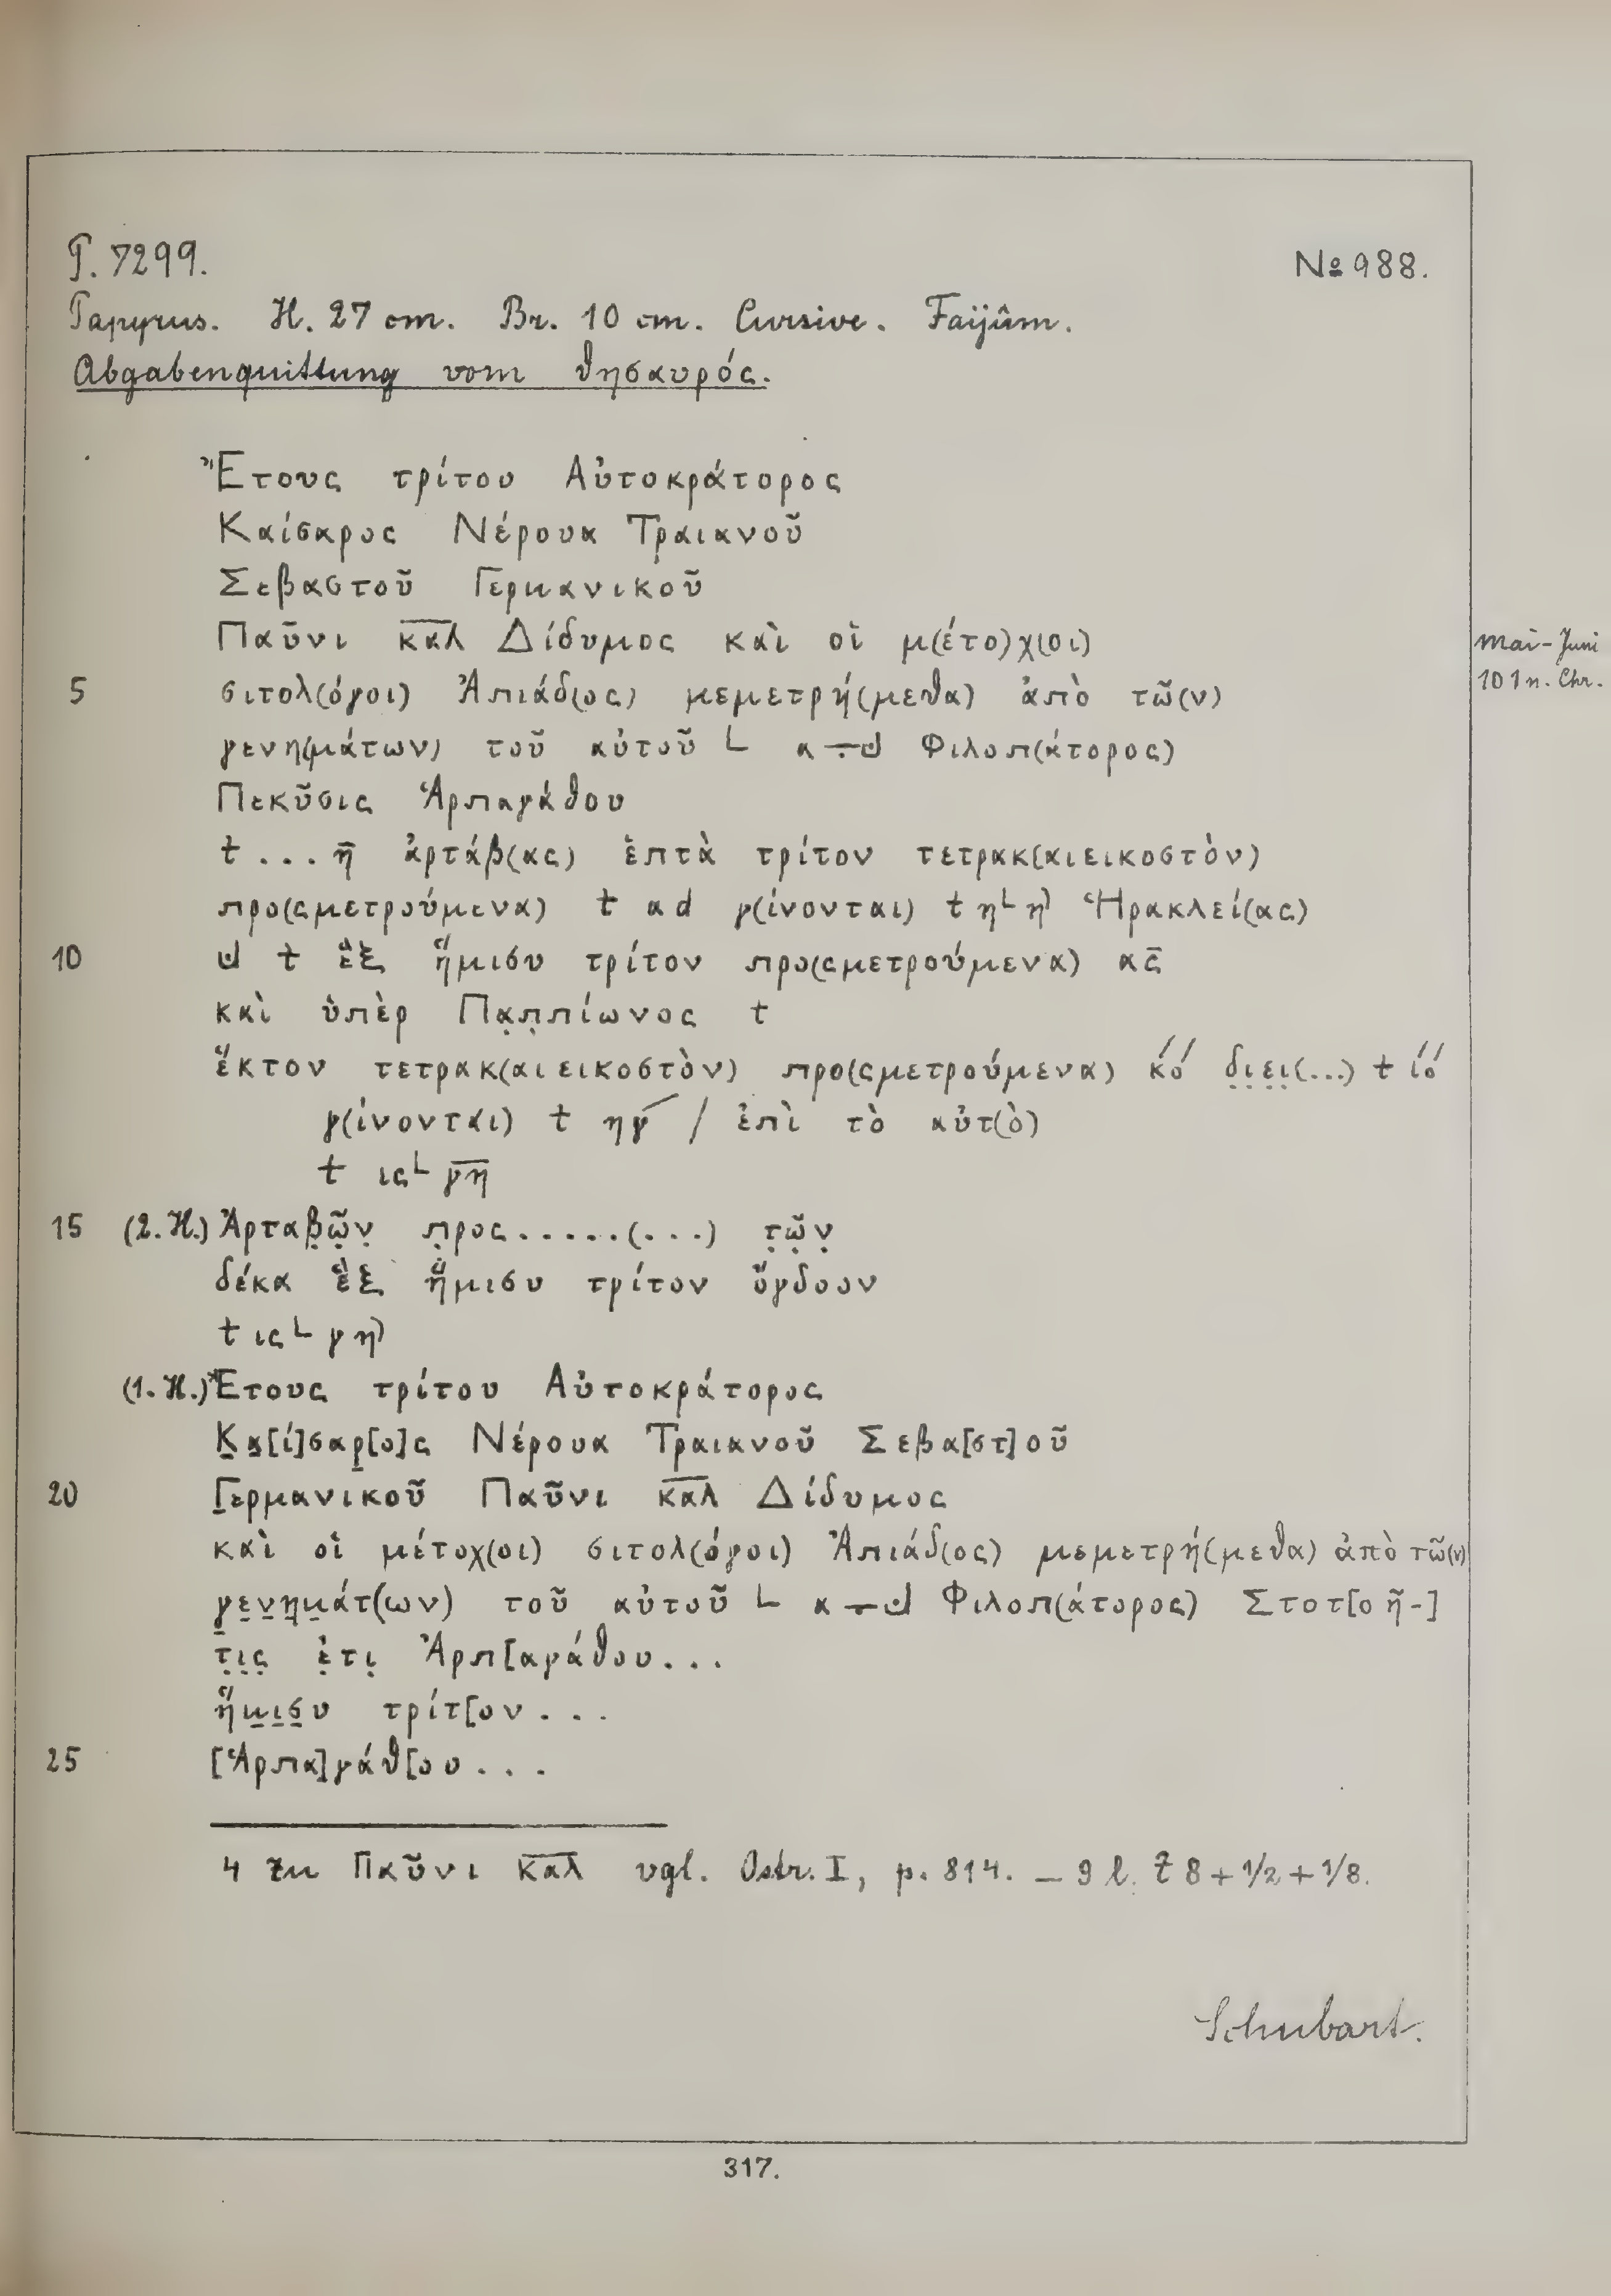 P. 7299. No 988.
Papyrus. H. 27 cm. Br. 10 cm. Cursive. Faijûm.
Abgabenquittung vom θησαυρός.
Ἔτους τρίτου Αὐτοκράτορος
Καίσαρος Νέρουα Τραιανοῦ
Σεβαστοῦ Γερμανικοῦ
Παῦνι κ̅α̅λ̅ Δίδυμος καὶ οἱ μ(έτο)χ(οι)
Mai-Juni
101 n. Chr.
5 σιτολ(όγοι) Ἀπιάδ(ος) μεμετρή(μεθα) ἀπὸ τῶ(ν)
γενη(μάτων) τοῦ αὐτοῦ L α Φιλοπ(άτορος)
Πεκῦσις Ἁρπαγάθου
t ... η̅ ἀρτάβ(ας) ἑπτὰ τρίτον τετρακ(αιεικοστὸν)
προ(ςμετρούμενα) t αd γ(ίνονται) t η L η) Ἡρακλεί(ας)
10 t ἓξ ἥμισυ τρίτον προ(ςμετρούμενα) ας̅
καὶ ὑπὲρ Πạπ̣πίωνος t
ἕκτον τετρακ(αιεικοστὸν) προ(ςμετρούμενα) κό// δ̣ι̣ε̣ι̣(...) t ίό//
γ(ίνονται) t ηγ̅ / ἐπὶ τὸ αὐτ(ὸ)
t ις L γ̅η̅
15 (2. H.) Ἀρταβ̣ῶ̣ν̣ π̣ρος.....(...) τ̣ῶ̣ν̣
δέκα ἓξ ἥμισυ τρίτον ὄγδοον
t ις L γη)
(1. H.) Ἔτους τρίτου Αὐτοκράτορος
Κα[ί]σαρ[ο]ς Νέρουα Τραιανοῦ Σεβα[στ]οῦ
20 Γερμανικοῦ Παῦνι κ̅α̅λ̅ Δίδυμος
καὶ οἱ μέτοχ(οι) σιτολ(όγοι) Ἀπιάδ(ος) μεμετρή(μεθα) ἀπὸ τῶ(ν)
γενημάτ(ων) τοῦ αὐτοῦ L α Φιλοπ(άτορος) Στοτ[οῆ-]
τ̣ι̣ς̣ ἐ̣τι̣ Ἁρπ[αγάθου...
ἥμισυ τρίτ[ον...
25 [Ἁρπα]γάθ[ου...
4 zu Παῦνι κ̅α̅λ̅ vgl. Ostr. I, p. 814. – 9 l. t 8 + 1/2 + 1/8.
Schubart.
317.